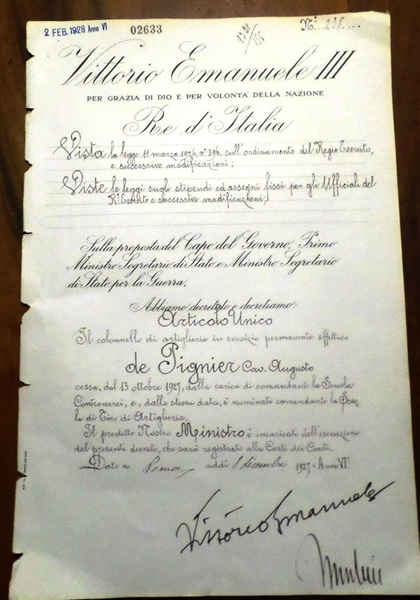 2 FEB. 1928 Anno VI
02633
N.
Vittorio Emanuele III
PER GRAZIA DI DIO E PER VOLONTÀ DELLA NAZIONE
Re d'Italia
Vista la legge 11 marzo 1926, n° 396, sull'ordinamento del Regio Esercito,
e successive modificazioni;
Viste le leggi sugli stipendi ed assegni fissi per gli Ufficiali del
R.° Esercito e successive modificazioni;
Sulla proposta del Capo del Governo, Primo
Ministro Segretario di Stato e Ministro Segretario
di Stato per la Guerra,
Abbiamo decretato e decretiamo:
Articolo Unico
Il colonnello di artiglieria in servizio permanente effettivo
de Pignier Cav. Augusto
cessa, dal 13 ottobre 1927, dalla carica di comandante la Scuola
Controaerei, e, dalla stessa data, è nominato comandante la Scuo
la di Tiro di Artiglieria.
Il predetto Nostro Ministro è incaricato dell'esecuzione
del presente decreto, che sarà registrato alla Corte dei Conti.
Dato a Roma addì 8 dicembre 1927 - Anno VI°
Vittorio Emanuele